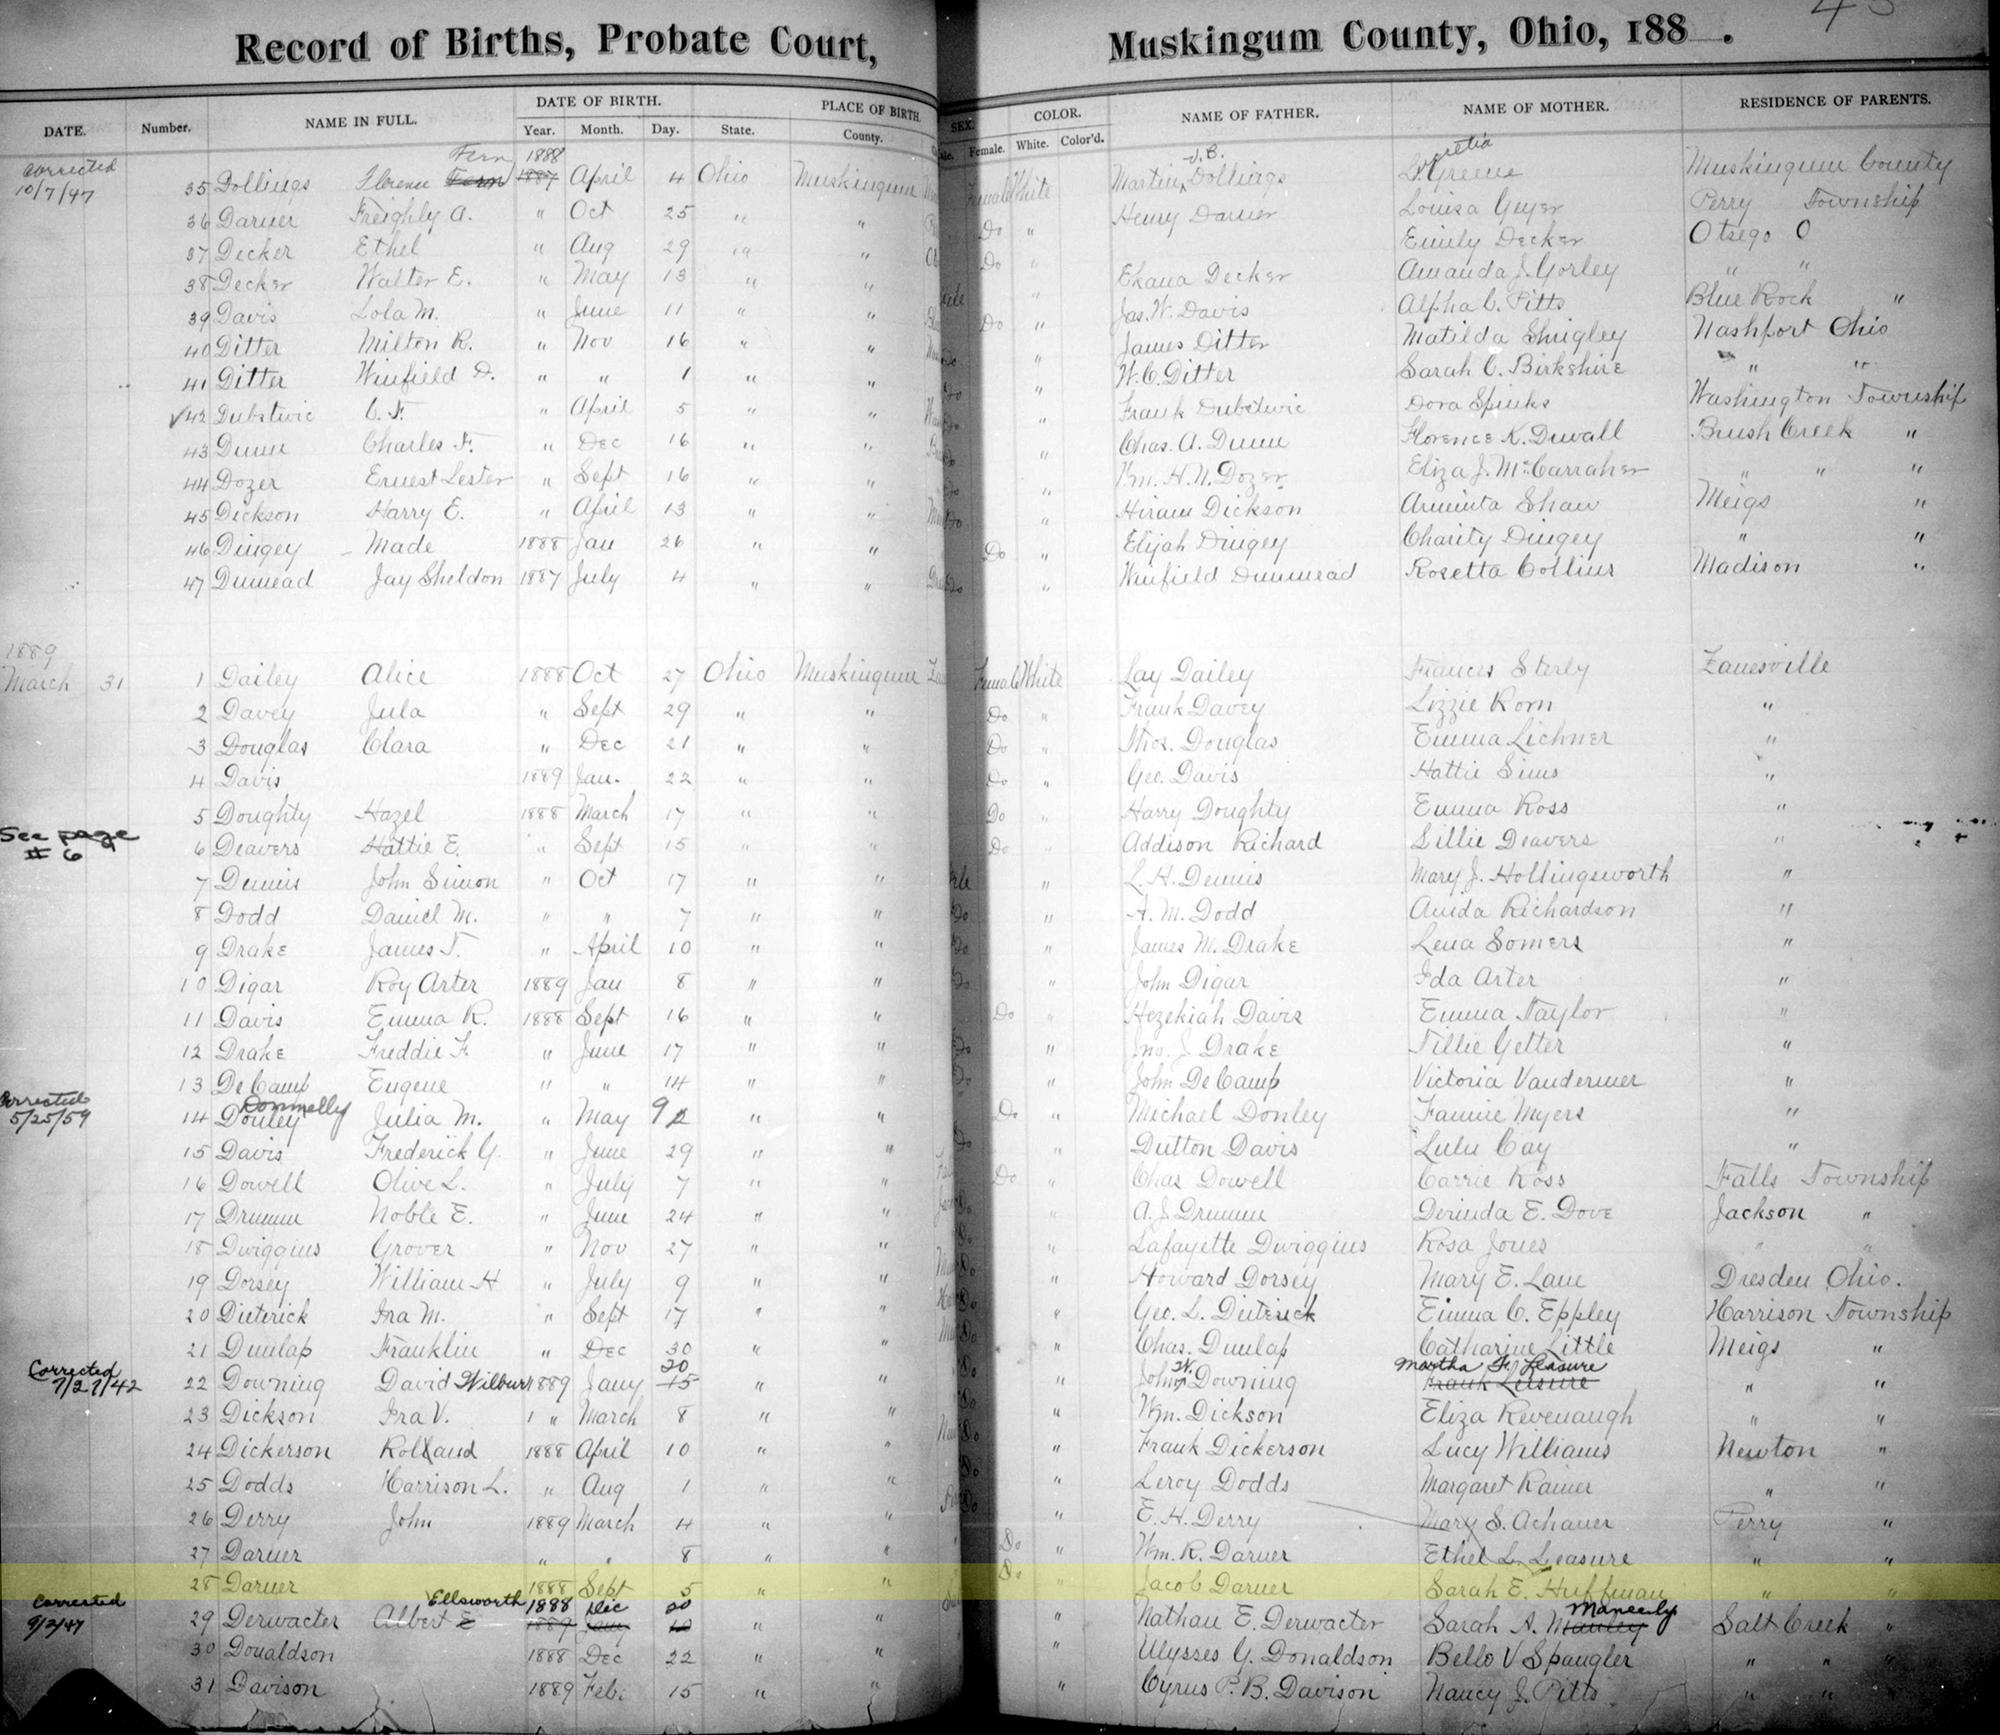 Record of Births, Probate Court, Muskingum County, Ohio, 188 .
DATE. Number. NAME IN FULL. DATE OF BIRTH. PLACE OF BIRTH. SEX. COLOR. NAME OF FATHER. NAME OF MOTHER. RESIDENCE OF PARENTS.
Year. Month. Day. State. County. Female. White. Color'd.
Corrected Fern 1888 J.B. Lucretia
10/7/47 35 Dollings Florence Fern 1887 April 4 Ohio Muskingum Female White Martin Dollings L. Greene Muskingum County
36 Daruer Freighly A. " Oct 25 " " Do " Henry Daruer Louisa Geyer Perry Township
37 Decker Ethel " Aug 29 " " Do " Emily Decker Otsego O
38 Decker Walter E. " May 13 " " " Ekana Decker Amanda J. Gorley " "
39 Davis Lola M. " June 11 " " Do " Jas. W. Davis Alpha C. Pitts Blue Rock "
40 Ditter Milton R. " Nov 16 " " Do " James Ditter Matilda Shugley Nashport Ohio
41 Ditter Winfield D. " " 1 " " Do " W.C. Ditter Sarah C. Birkshire " "
✓42 Dubstwic C. F. " April 5 " " Do " Frank Dubstwic Dora Spinks Washington Township
43 Dunn Charles F. " Dec 16 " " Do " Chas. A. Dunn Florence K. Duvall Brush Creek "
44 Dozer Ernest Lester " Sept 16 " " Do " Wm. H. N. Dozer Eliza J. McCarraher " " "
45 Dickson Harry E. " April 13 " " Do " Hiram Dickson Arminta Shaw Meigs "
46 Dingey Made 1888 Jan 26 " " Do " Elijah Dingey Charity Dingey " "
47 Dunnead Jay Sheldon 1887 July 4 " " Do " Winfield Dunnead Rosetta Collins Madison "
1889
March 31 1 Dailey Alice 1888 Oct 27 Ohio Muskingum Female White Lay Dailey Frances Sterly Zanesville
2 Davey Jula " Sept 29 " " Do " Frank Davey Lizzie Korn "
3 Douglas Clara " Dec 21 " " Do " Thos. Douglas Emma Lichner "
4 Davis 1889 Jan. 22 " " Do " Geo. Davis Hattie Sims "
5 Doughty Hazel 1888 March 17 " " Do " Harry Doughty Emma Ross "
See page # 6 6 Deavers Hattie E. " Sept 15 " " Do " Addison Richard Lillie Deavers "
7 Dennis John Simon " Oct 17 " " " L. H. Dennis Mary J. Hollingsworth "
8 Dodd Daniel M. " " 7 " " Do " A. M. Dodd Anida Richardson "
9 Drake James T. " April 10 " " Do " James M. Drake Lena Somers "
10 Digar Roy Arter 1889 Jan 8 " " Do " John Digar Ida Arter "
11 Davis Emma R. 1888 Sept 16 " " Do " Hezekiah Davis Emma Taylor "
12 Drake Freddie F. " June 17 " " Do " Jno. J. Drake Tillie Getter "
13 DeCamp Eugene " " 14 " " Do " John DeCamp Victoria Vandermer "
Corrected Donnelly
5/25/59 14 Donley Julia M. " May 9 2 " " Do " Michael Donley Fannie Myers "
15 Davis Frederick G. " June 29 " " Do " Dutton Davis Lulu Cay "
16 Dowell Olive L. " July 7 " " Do " Chas Dowell Carrie Ross Falls Township
17 Drumm Noble E. " June 24 " " Do " A. J. Drumm Dorinda E. Dove Jackson "
18 Dwiggins Grover " Nov 27 " " Do " Lafayette Dwiggins Rosa Jones " "
19 Dorsey William H " July 9 " " Do " Howard Dorsey Mary E. Lane Dresden Ohio.
20 Dieterick Ira M. " Sept 17 " " Do " Geo. L. Deiterick Emma C. Eppley Harrison Township
21 Dunlap Franklin " Dec 30 " " Do " Chas. Dunlap Catharine Little Meigs "
Corrected 20 W. Martha F. Leasure
7/27/42 22 Downing David Wilbur 1889 Jany 15 " " Do " John Downing Frank Leisure " "
23 Dickson Ira V. 1 " March 8 " " Do " Wm. Dickson Eliza Revenaugh " "
24 Dickerson Rolland 1888 April 10 " " Do " Frank Dickerson Lucy Williams Newton "
25 Dodds Harrison L. " Aug 1 " " Do " Leroy Dodds Margaret Ramer " "
26 Derry John 1889 March 4 " " Do " E. H. Derry Mary S. Achauer Perry "
27 Daruer " " 8 " " Do " Wm. R. Daruer Ethel L. Leasure " "
28 Daruer 1888 Sept 5 " " Do " Jacob Daruer Sarah E. Huffman " "
Corrected Ellsworth 1888 Dec 20 Maneely
9/2/47 29 Derwacter Albert E 1889 Jany 10 " " " Nathan E. Derwacter Sarah A. Manley Salt Creek "
30 Donaldson 1888 Dec 22 " " " Ulysses G. Donaldson Bello V Spangler " " "
31 Davison 1889 Feb. 15 " " " Cyrus P. B. Davison Nancy J. Pitts " " "